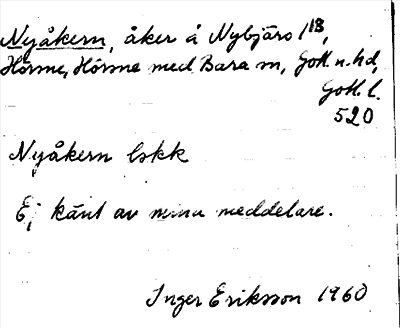 Nyåkern, åker å Nybjärs 1/18,
Hörsne, Hörsne med Bara sn, Gotl. n. hd,
Gotl. l.
520
Nyåkern lskk
Ej känt av mina meddelare.
Inger Eriksson 1960